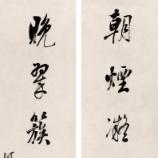 朝煙凝
晚翠簇